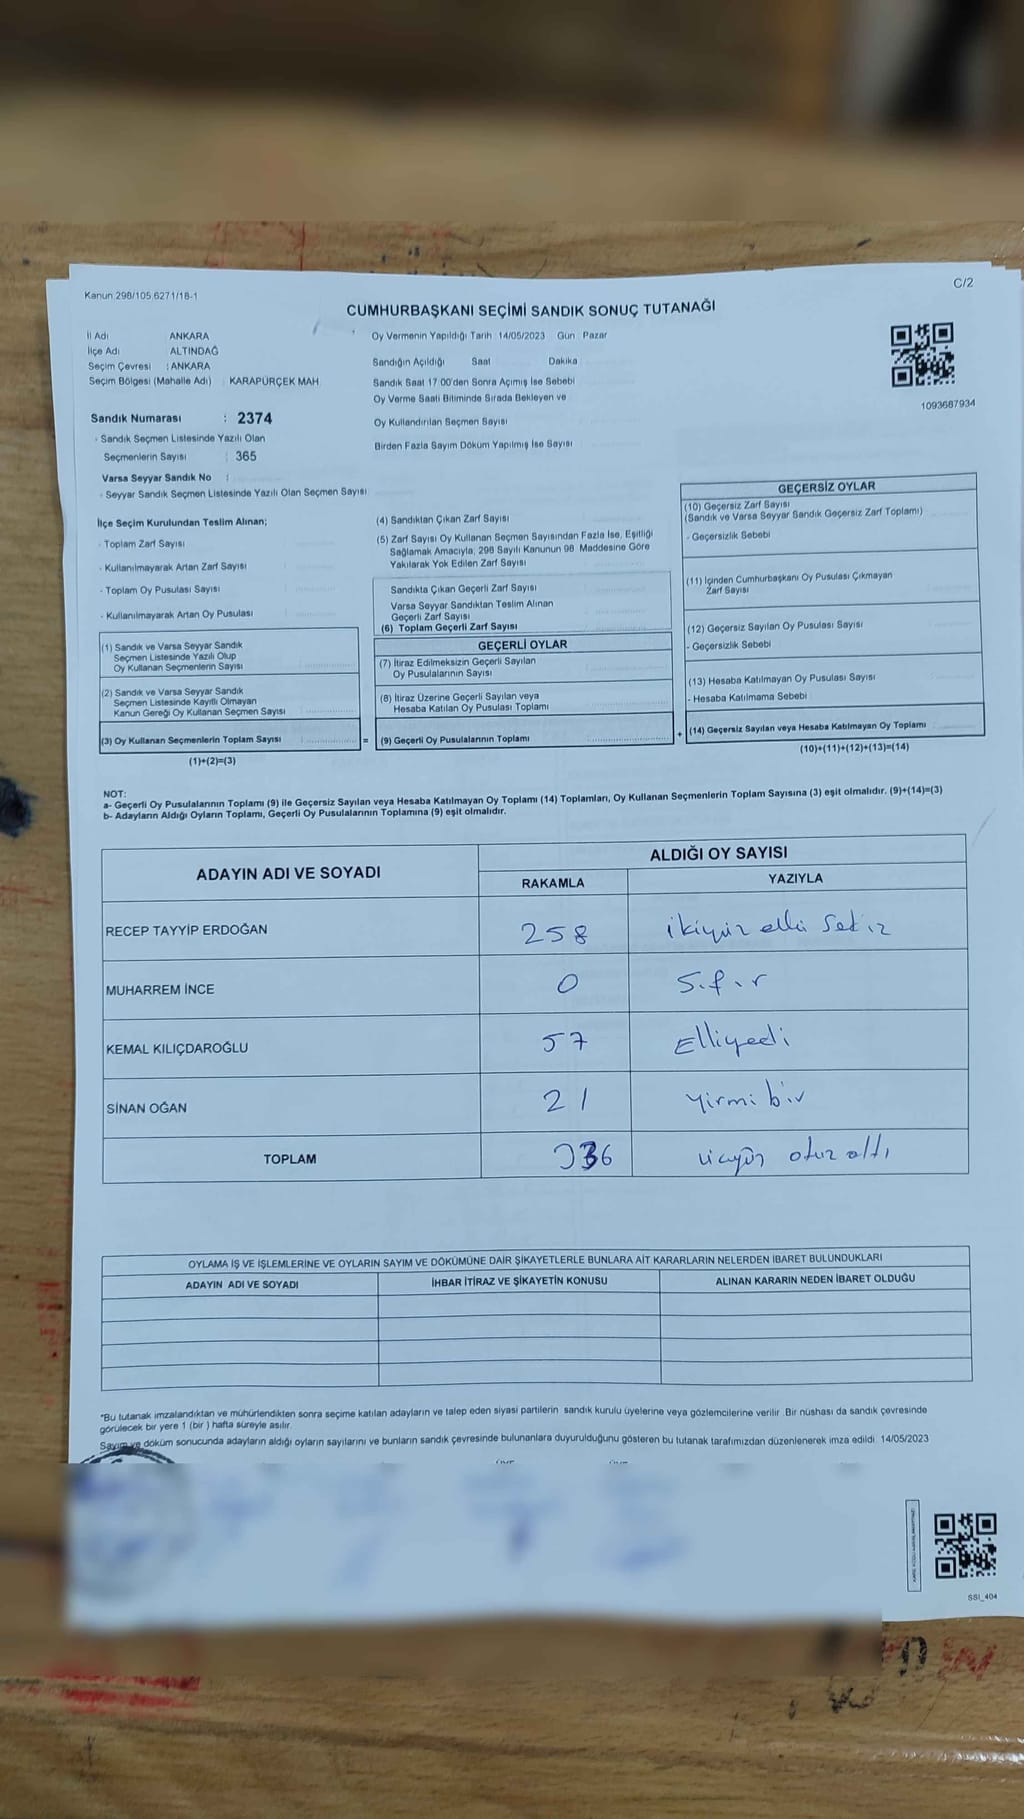 Kanun 298/105 6271/18-1
C/2
CUMHURBAŞKANI SEÇİMİ SANDIK SONUÇ TUTANAĞI
İl Adı ANKARA
İlçe Adı ALTINDAĞ
Seçim Çevresi : ANKARA
Seçim Bölgesi (Mahalle Adı) : KARAPÜRÇEK MAH.
Oy Vermenin Yapıldığı Tarih 14/05/2023 Gün Pazar
Sandığın Açıldığı Saat Dakika
Sandık Saat 17 00'den Sonra Açımış İse Sebebi
Oy Verme Saati Bitiminde Sırada Bekleyen ve
Oy Kullandırılan Seçmen Sayısı
Birden Fazla Sayım Döküm Yapılmış İse Sayısı
1093687934
Sandık Numarası : 2374
- Sandık Seçmen Listesinde Yazılı Olan
Seçmenlerin Sayısı : 365
Varsa Seyyar Sandık No :
- Seyyar Sandık Seçmen Listesinde Yazılı Olan Seçmen Sayısı
İlçe Seçim Kurulundan Teslim Alınan;
- Toplam Zarf Sayısı
- Kullanılmayarak Artan Zarf Sayısı
- Toplam Oy Pusulası Sayısı
- Kullanılmayarak Artan Oy Pusulası
(1) Sandık ve Varsa Seyyar Sandık
Seçmen Listesinde Yazılı Olup
Oy Kullanan Seçmenlerin Sayısı
(2) Sandık ve Varsa Seyyar Sandık
Seçmen Listesinde Kayıtlı Olmayan
Kanun Gereği Oy Kullanan Seçmen Sayısı
(3) Oy Kullanan Seçmenlerin Toplam Sayısı
=
(1)+(2)=(3)
(4) Sandıktan Çıkan Zarf Sayısı
(5) Zarf Sayısı Oy Kullanan Seçmen Sayısından Fazla İse, Eşitliği
Sağlamak Amacıyla, 298 Sayılı Kanunun 98 Maddesine Göre
Yakılarak Yok Edilen Zarf Sayısı
Sandıkta Çıkan Geçerli Zarf Sayısı
Varsa Seyyar Sandıktan Teslim Alınan
Geçerli Zarf Sayısı
(6) Toplam Geçerli Zarf Sayısı
GEÇERLİ OYLAR
(7) İtiraz Edilmeksizin Geçerli Sayılan
Oy Pusulalarının Sayısı
(8) İtiraz Üzerine Geçerli Sayılan veya
Hesaba Katılan Oy Pusulası Toplamı
(9) Geçerli Oy Pusulalarının Toplamı
+
GEÇERSİZ OYLAR
(10) Geçersiz Zarf Sayısı
(Sandık ve Varsa Seyyar Sandık Geçersiz Zarf Toplamı)
- Geçersizlik Sebebi
(11) İçinden Cumhurbaşkanı Oy Pusulası Çıkmayan
Zarf Sayısı
(12) Geçersiz Sayılan Oy Pusulası Sayısı
- Geçersizlik Sebebi
(13) Hesaba Katılmayan Oy Pusulası Sayısı
- Hesaba Katılmama Sebebi
(14) Geçersiz Sayılan veya Hesaba Katılmayan Oy Toplamı
(10)+(11)+(12)+(13)=(14)
NOT:
a- Geçerli Oy Pusulalarının Toplamı (9) ile Geçersiz Sayılan veya Hesaba Katılmayan Oy Toplamı (14) Toplamları, Oy Kullanan Seçmenlerin Toplam Sayısına (3) eşit olmalıdır. (9)+(14)=(3)
b- Adayların Aldığı Oyların Toplamı, Geçerli Oy Pusulalarının Toplamına (9) eşit olmalıdır.
ADAYIN ADI VE SOYADI
ALDIĞI OY SAYISI
RAKAMLA YAZIYLA
RECEP TAYYİP ERDOĞAN 258 ikiyüz elli sekiz
MUHARREM İNCE 0 Sıfır
KEMAL KILIÇDAROĞLU 57 Elliyedi
SİNAN OĞAN 21 Yirmi bir
TOPLAM 336 üçyüz otuz altı
OYLAMA İŞ VE İŞLEMLERİNE VE OYLARIN SAYIM VE DÖKÜMÜNE DAİR ŞİKAYETLERLE BUNLARA AİT KARARLARIN NELERDEN İBARET BULUNDUKLARI
ADAYIN ADI VE SOYADI İHBAR İTİRAZ VE ŞİKAYETİN KONUSU ALINAN KARARIN NEDEN İBARET OLDUĞU
*Bu tutanak imzalandıktan ve mühürlendikten sonra seçime katılan adayların ve talep eden siyasi partilerin sandık kurulu üyelerine veya gözlemcilerine verilir. Bir nüshası da sandık çevresinde
görülecek bir yere 1 (bir ) hafta süreyle asılır.
Sayım ve döküm sonucunda adayların aldığı oyların sayılarını ve bunların sandık çevresinde bulunanlara duyurulduğunu gösteren bu tutanak tarafımızdan düzenlenerek imza edildi. 14/05/2023
SSI_404